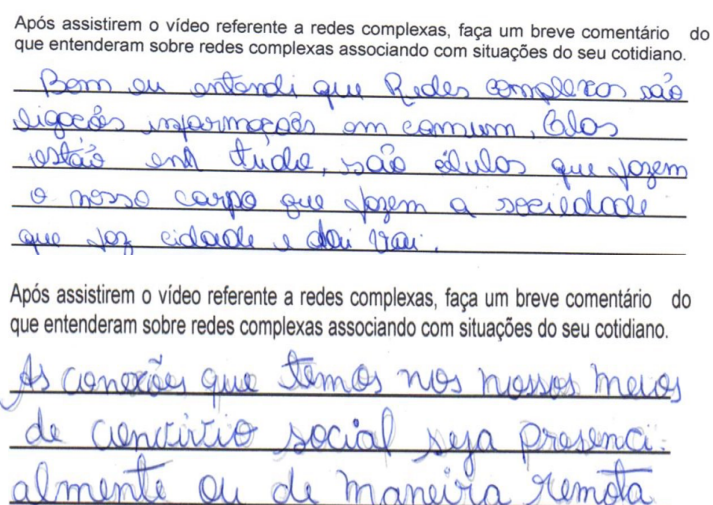 Após assistirem o vídeo referente a redes complexas, faça um breve comentário do
que entenderam sobre redes complexas associando com situações do seu cotidiano.
Bom eu entendi que Redes complexas são
ligações informações em comum, Elas
estão em tudo, são células que fazem
o nosso corpo que fazem a sociedade
que faz cidade e dai vai.
Após assistirem o vídeo referente a redes complexas, faça um breve comentário do
que entenderam sobre redes complexas associando com situações do seu cotidiano.
As conexões que temos nos nossos meios
de convívio social seja presenci-
almente ou de maneira remota